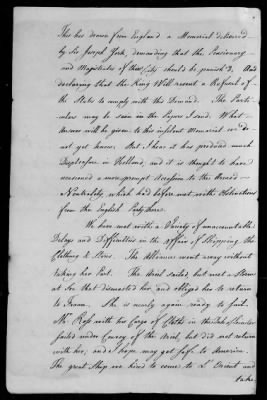 This has drawn from England a Memorial delivered
by Sir Joseph York, demanding that the Pensionary
and Magistrates of that City should be punish'd, And
declaring that the King will resent a Refusal of
the States to comply with this Demand. The Parti-
culars may be seen in the Papers I send. What
Answer will be given to this insolent Memorial we do
not yet know; But I hear it has produced much
Displeasure in Holland, and it is thought to have
occasioned a more prompt Accession to the Armed
Neutrality, which had before met with Obstructions
from the English Party there.
We have met with a Variety of unaccountable
Delays and Difficulties in the Affair of Shipping the
Clothing & Stores. The Alliance went away without
taking her Part. The Ariel sailed, but met a Storm
at Sea that dismasted her, and obliged her to return
to France. She is nearly again ready to sail.
Mr. Ross with his Cargo of Cloth in the
sailed under Convoy of the Ariel, but did not return
with her, and I hope may get safe to America.
The great Ship we hired to come to L'Orient and
take